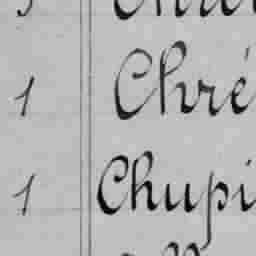 1 Chré
1 Chupi